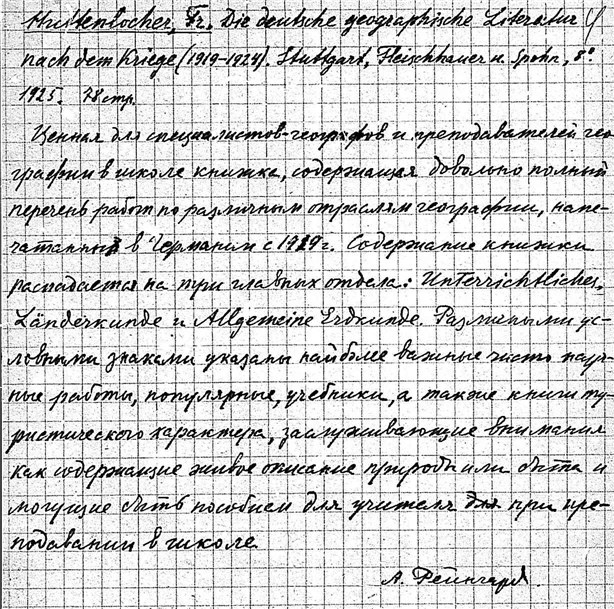 Huttenlocher, Fr. Die deutsche geographische Literatur
nach dem Kriege (1919-1924). Stuttgart, Fleischhauer u. Spohn, 8°.
1925. 78 стр.
Ценная для специалистов-географов и преподавателей гео
графии в школе книжка, содержащая довольно полный
перечень работ по различным отраслям географии, напе-
чатанных в Германии с 1919 г. Содержание книжки
распадается на три главных отдела: Unterrichtliches,
Länderkunde и Allgemeine Erdkunde. Различными ус-
ловными знаками указаны наиболее важные чисто науч-
ные работы, популярные, учебники, а также книги ту-
ристического характера, заслуживающие внимания
как содержащие живое описание природы или быта и
могущие быть пособием для учителя для при пре-
подавании в школе.
А. Рейнгард.